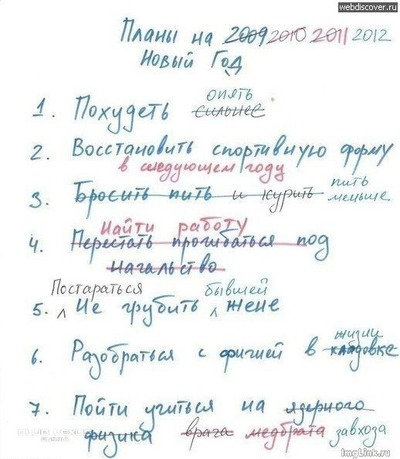 webdiscover.ru
Планы на 2009 2010 2011 2012
Новый Год
опять
1. Похудеть сильнее
2. Восстановить спортивную форму
в следующем году
3. Бросить пить и курить пить меньше
Найти работу
4. Перестать прогибаться под
начальство
Постараться бывшей
5. Не грубить жене
жизни
6. Разобраться с фигнёй в кладовке
7. Пойти учиться на ядерного
физика врача медбрата завхоза
ImgLink.ru